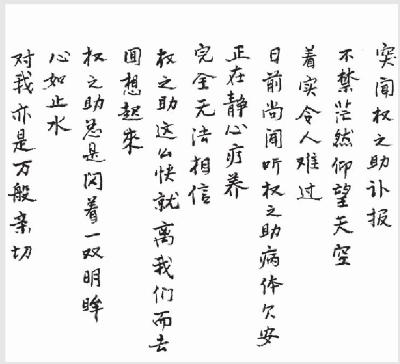 突闻权之助讣报
不禁茫然仰望天空
着实令人难过
日前尚闻听权之助病体欠安
正在静心疗养
完全无法相信
权之助这么快就离我们而去
回想起来
权之助总是闪着一双明眸
心如止水
对我亦是万般亲切